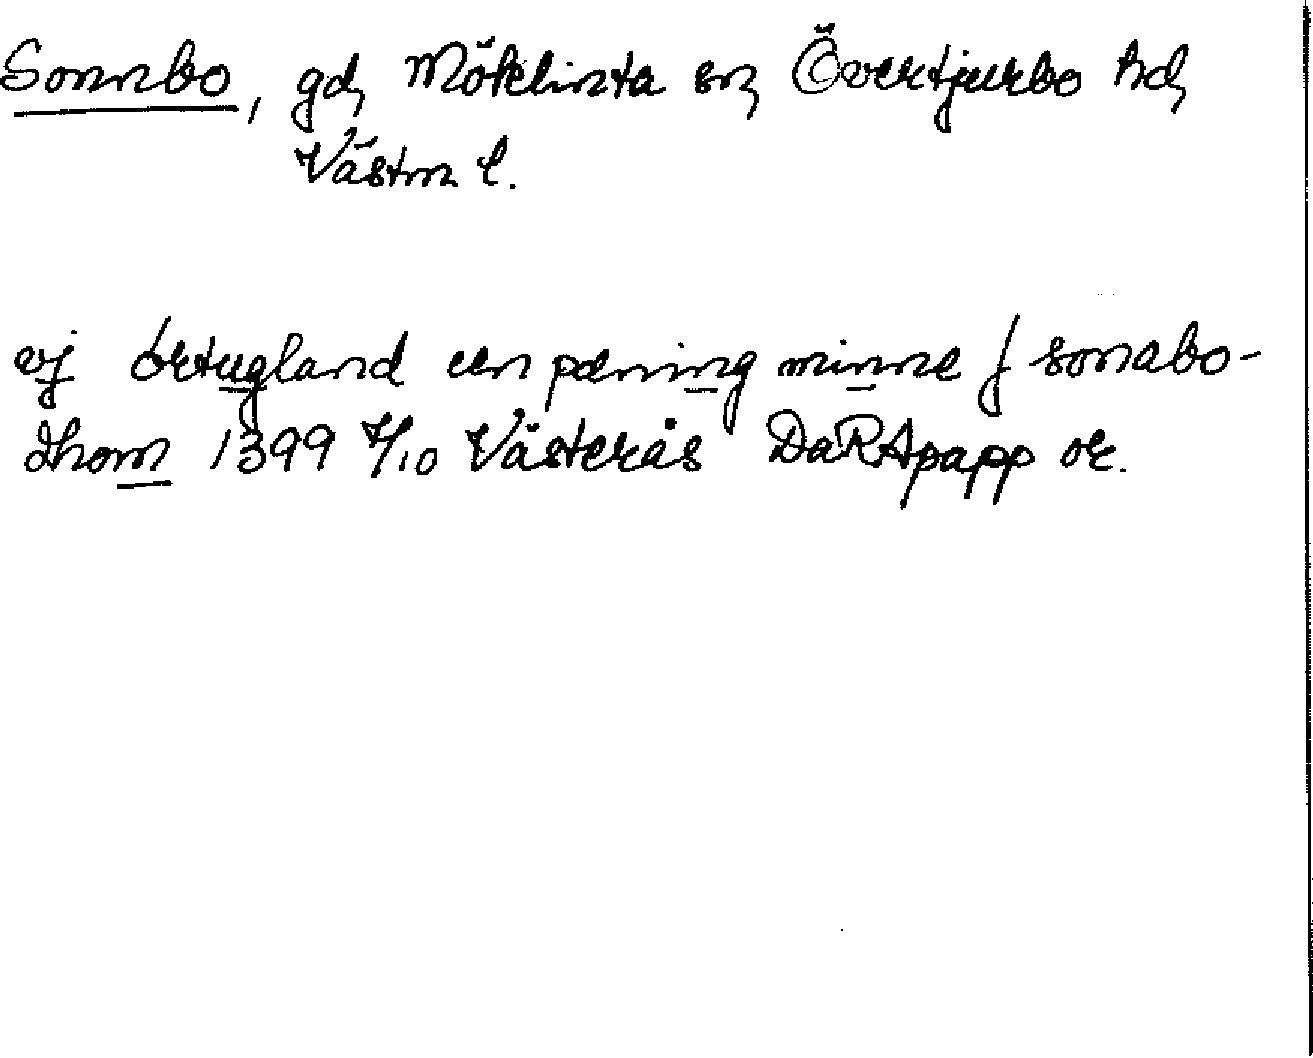 Sonnbo, gd, Möklinta sn, Övertjurbo hd,
Västm l.
vj örtugland een pæning minne j sonabo-
dhom 1399 4/10 Västerås DaRApapp or.